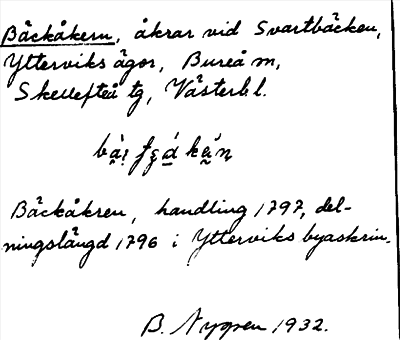 Bäckåkern, åkrar vid Svartbäcken,
Ytterviks ägor, Bureå m,
Skellefteå tg, Västerb. l.
Bäckåkren, handling 1797, del-
ningslängd 1796 i Ytterviks byaskrin.
B. Nygren 1932.